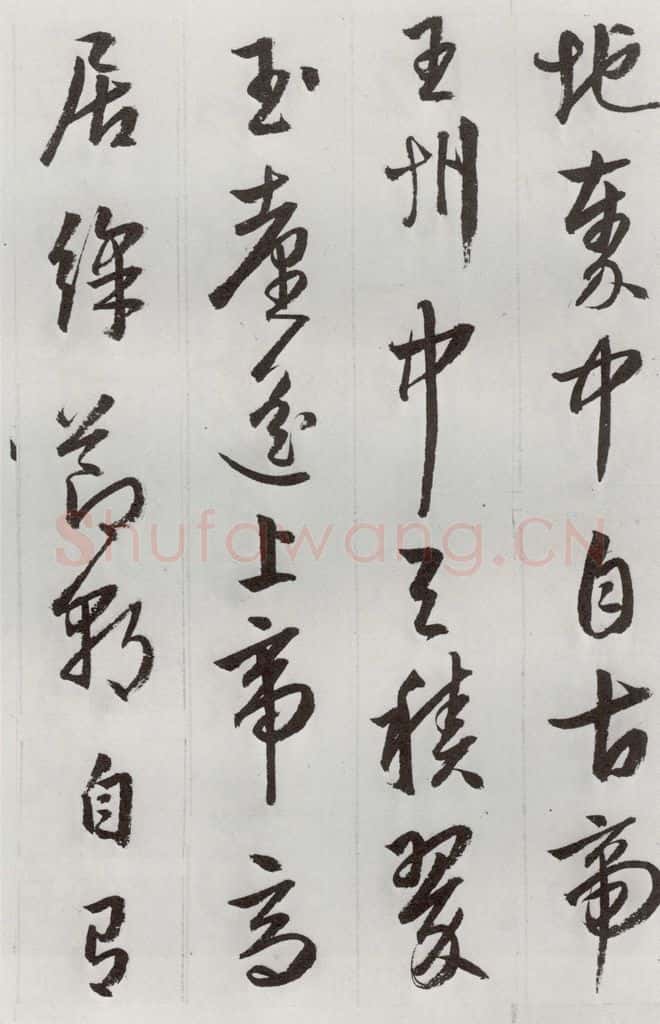 地秦中自古帝
王州中天積翠
玉臺遥上帝高
居絳節朝自有
Shufawang.CN